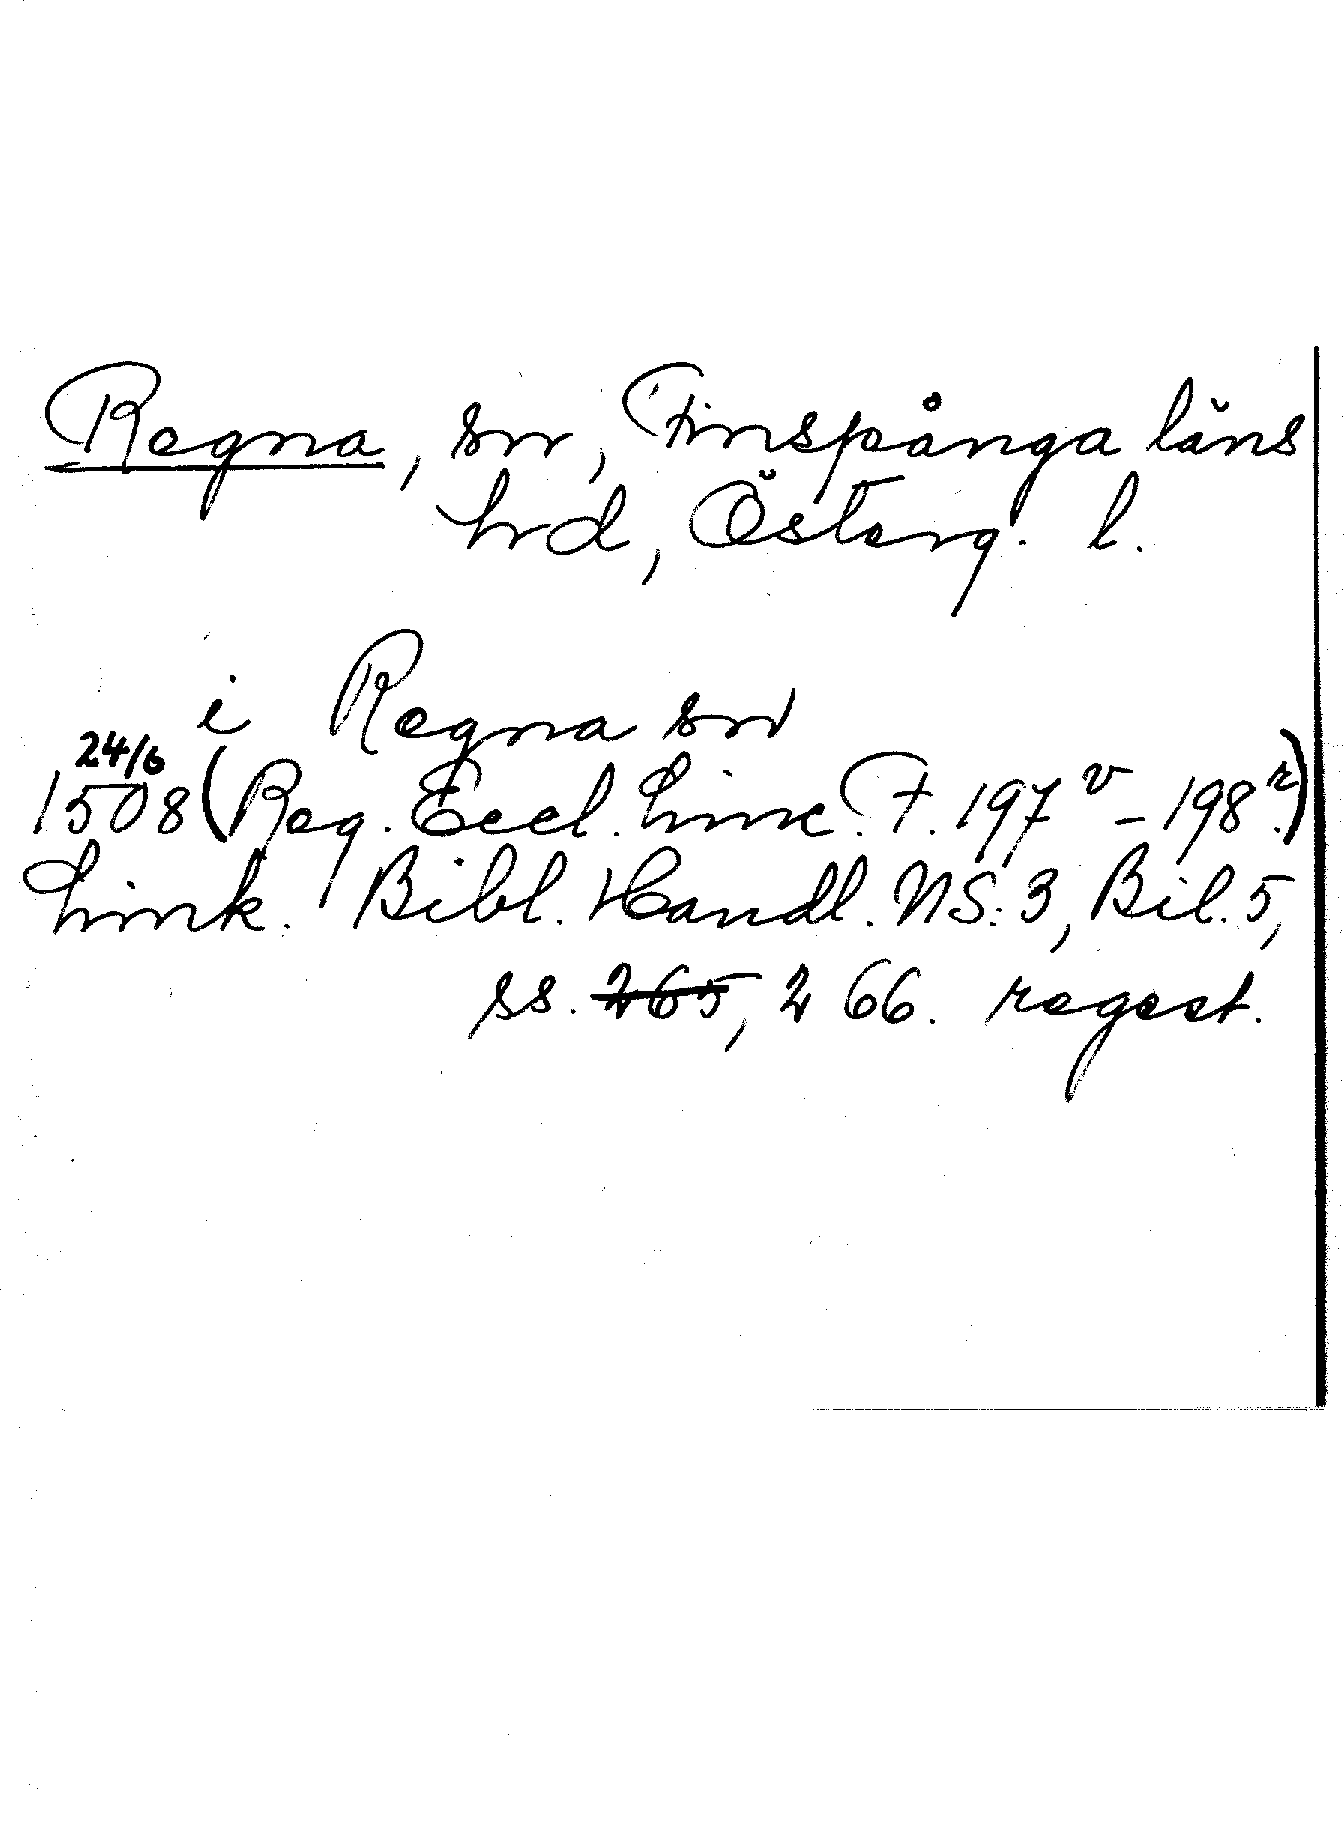 Regna, sn, Finspånga läns
hrd, Österg. l.
i Regna sn
24/6
1508 (Reg. Eccl. Linc. F. 197v - 198r.)
Link. Bibl. Handl. NS: 3, Bil. 5,
ss. 265, 266. regest.